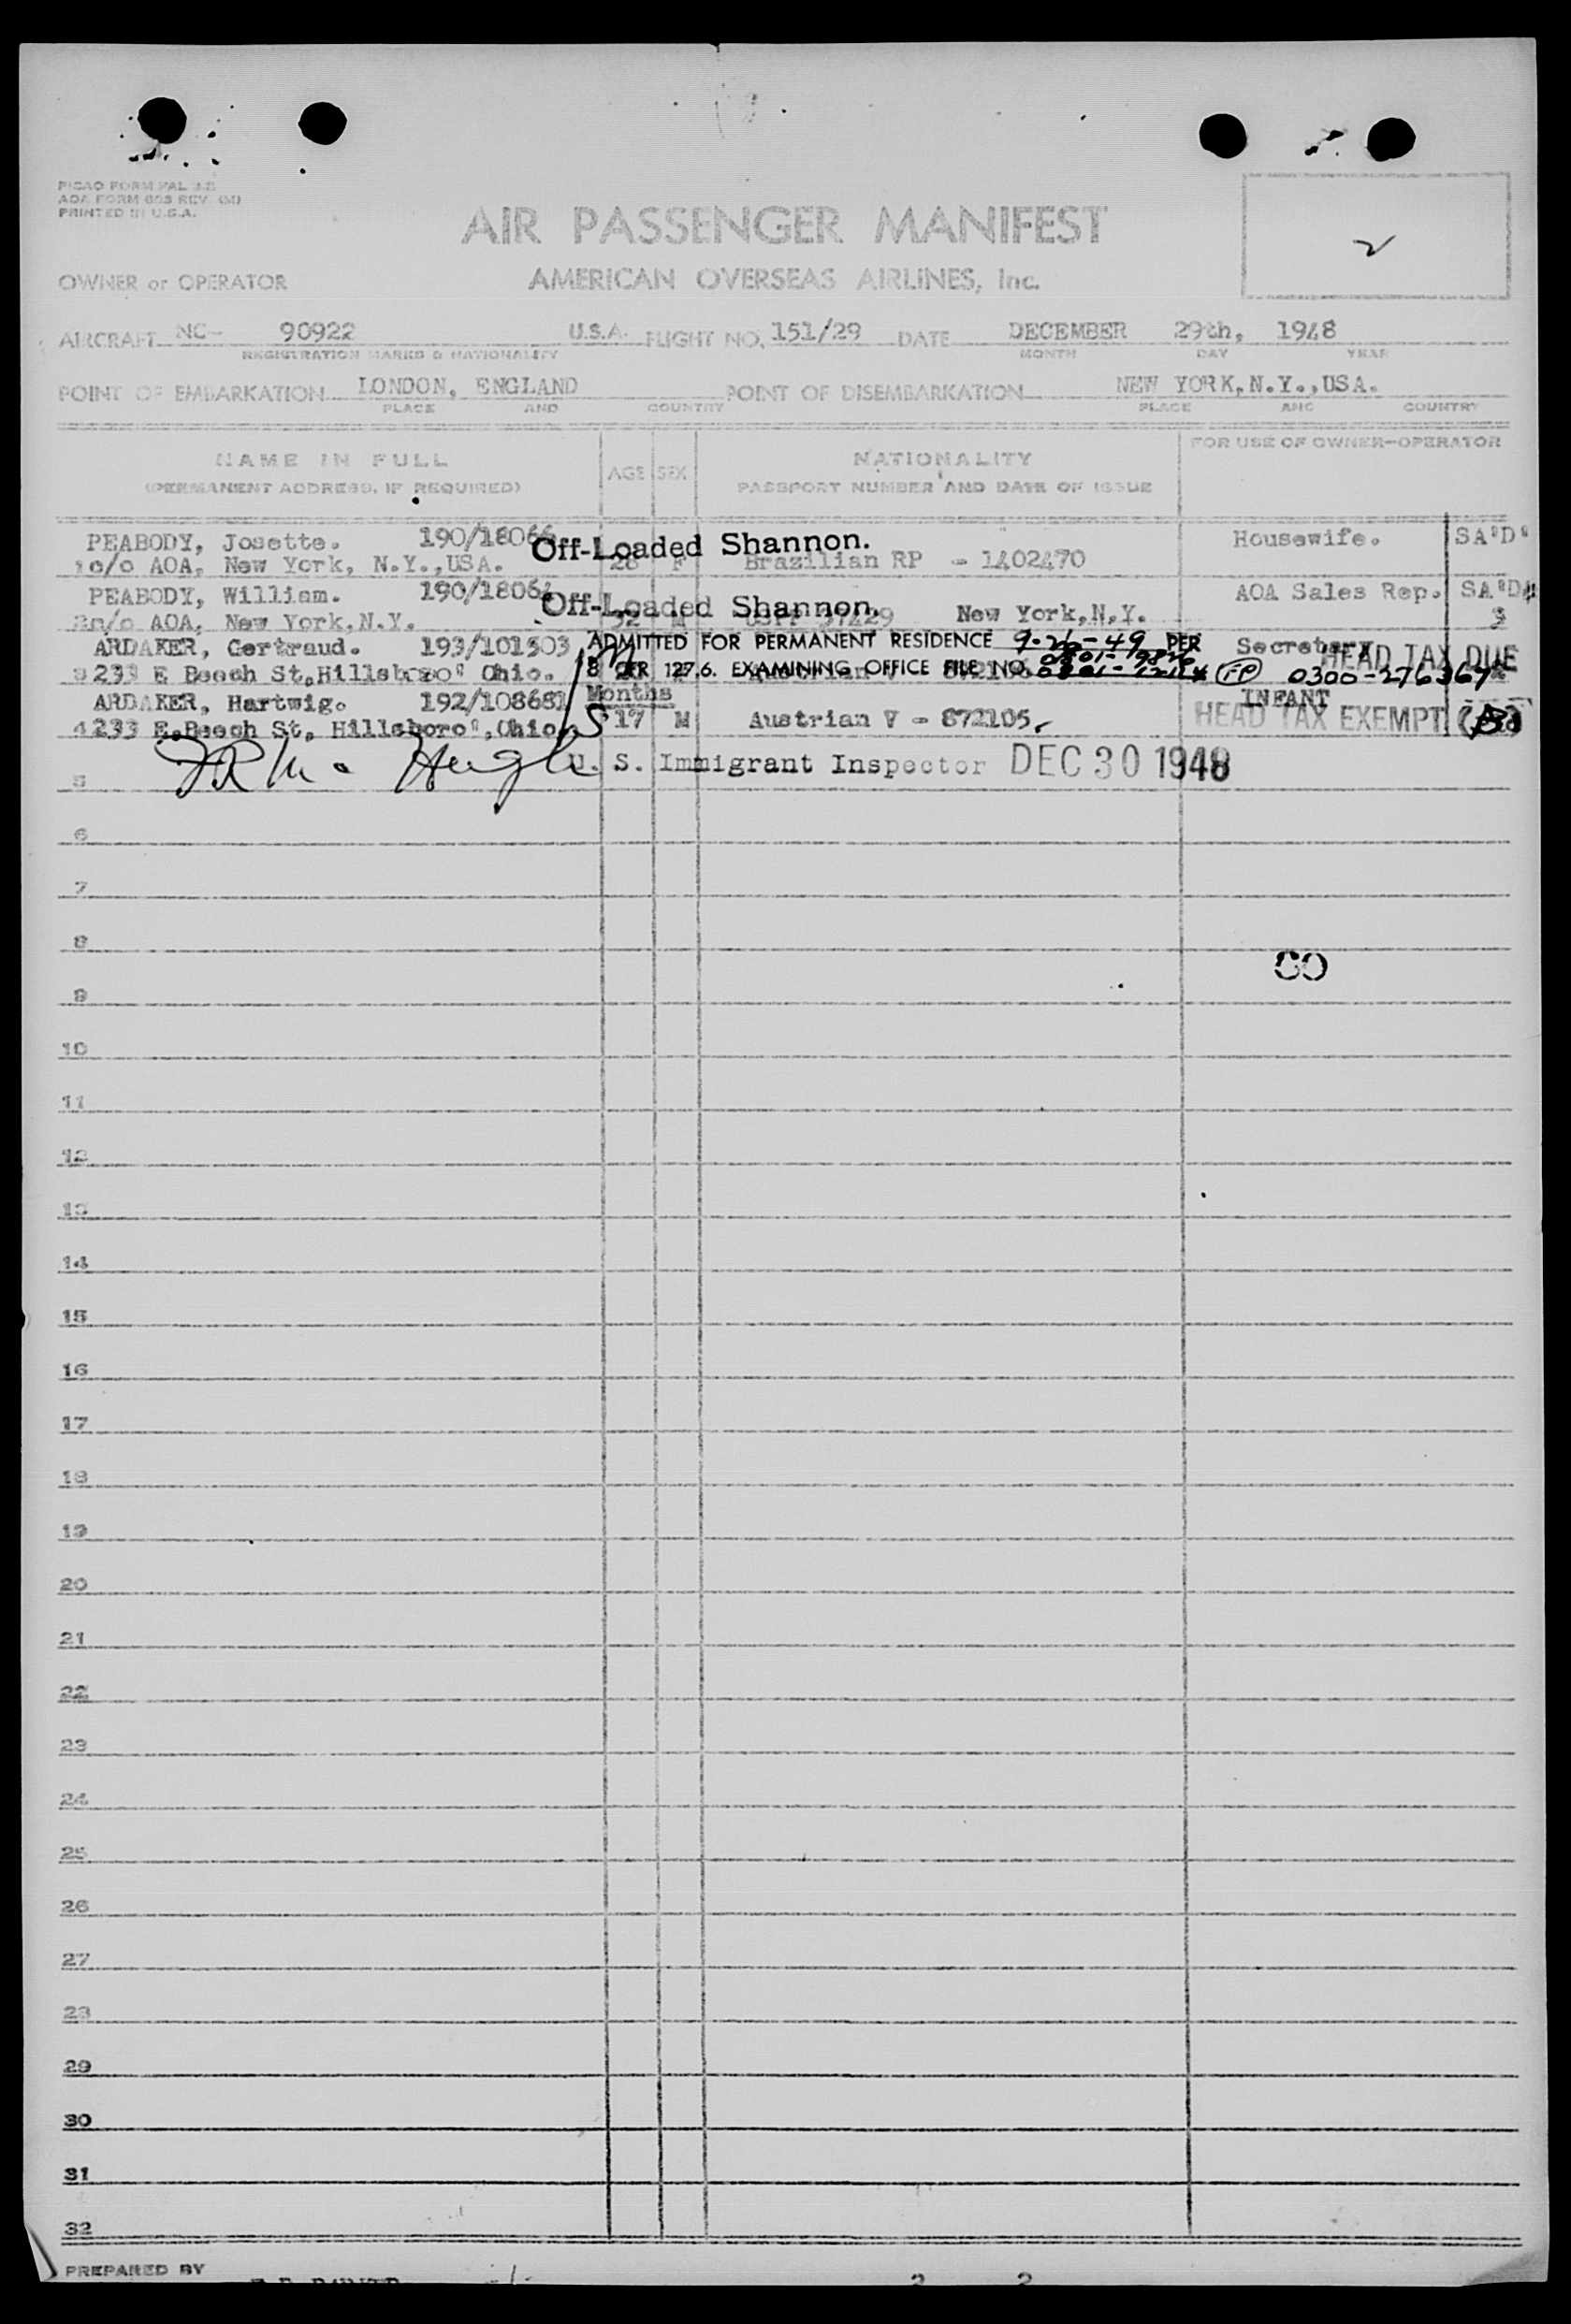 PICAO FORM PAL
AOA FORM 603 REV.
PRINTED IN U.S.A.
AIR PASSENGER MANIFEST
OWNER or OPERATOR AMERICAN OVERSEAS AIRLINES, Inc.
AIRCRAFT NC- 90922 U.S.A. FLIGHT NO. 151/29 DATE DECEMBER 29th, 1948
REGISTRATION MARKS & NATIONALITY MONTH DAY YEAR
POINT OF EMBARKATION LONDON, ENGLAND POINT OF DISEMBARKATION NEW YORK,N.Y.,USA.
PLACE AND COUNTRY PLACE AND COUNTRY
NAME IN FULL AGE SEX NATIONALITY FOR USE OF OWNER-OPERATOR
(PERMANENT ADDRESS, IF REQUIRED) PASSPORT NUMBER AND DATE OF ISSUE
PEABODY, Josette. Off-Loaded Shannon. Housewife. SA'D'
1 c/o AOA, New York, N.Y.,USA. 28 F Brazilian RP - 1402470
PEABODY, William. Off-Loaded Shannon. AOA Sales Rep. SA'D'
AOA, New York,N.Y. 32 M New York,N.Y.
ARDAKER, Gertraud. 193/101503 ADMITTED FOR PERMANENT RESIDENCE 9-26-49 PER Secretary HEAD TAX DUE
3 233 E Beech St,Hillsboro' Ohio. 8 CFR 127.6. EXAMINING OFFICE FILE NO. 0300-276367
ARDAKER, Hartwig. 192/108681 Months INFANT
4 233 E.Beech St, Hillsboro',Ohio 17 M Austrian V - 872105. HEAD TAX EXEMPT
5 U. S. Immigrant Inspector DEC 30 1948
6
7
8
60
9
10
11
12
13
14
15
16
17
18
19
20
21
22
23
24
25
26
27
28
29
30
31
32
PREPARED BY